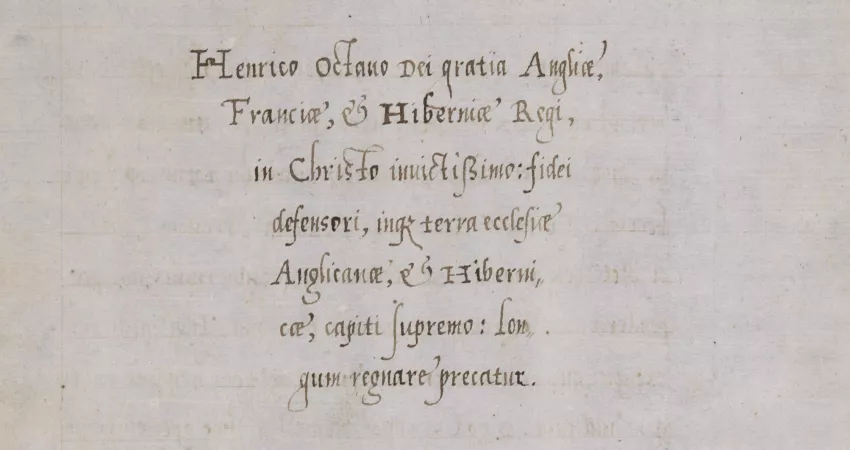 Henrico Octauo Dei gratia Angliæ,
Franciæ, & Hiberniæ Regi,
in Christo inuictißimo: fidei
defensori, inqꝫ terra ecclesiæ
Anglicanæ, & Hiberni,,
cæ, capiti supremo: Lon,,.
gum regnare precatur.